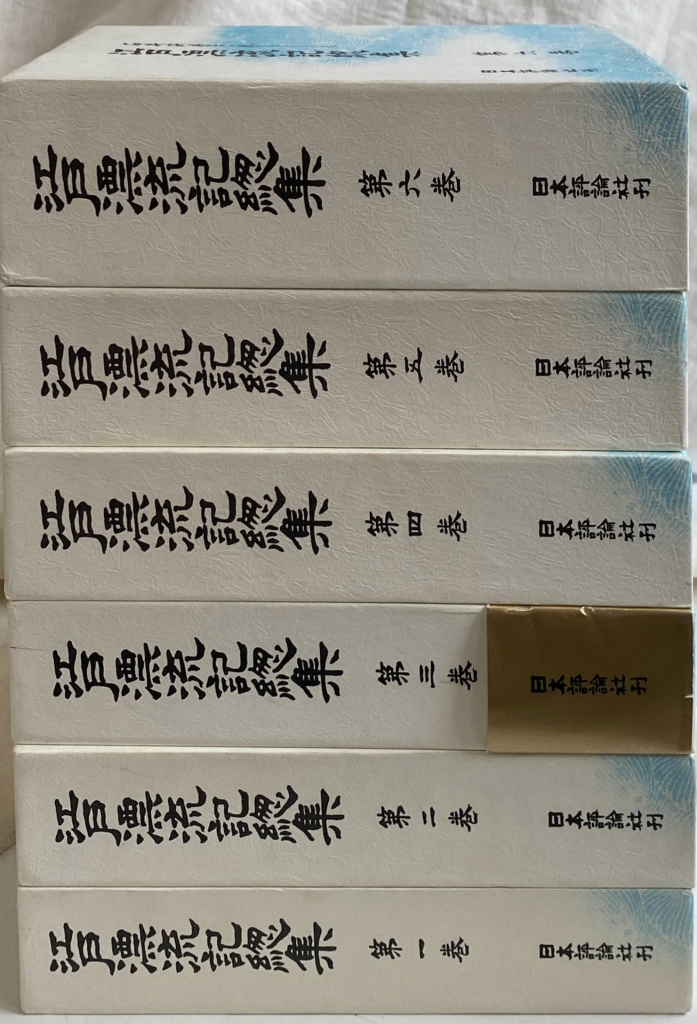 江戸漂流記総集 第六巻 日本評論社刊
江戸漂流記総集 第五巻 日本評論社刊
江戸漂流記総集 第四巻 日本評論社刊
江戸漂流記総集 第三巻 日本評論社刊
江戸漂流記総集 第二巻 日本評論社刊
江戸漂流記総集 第一巻 日本評論社刊